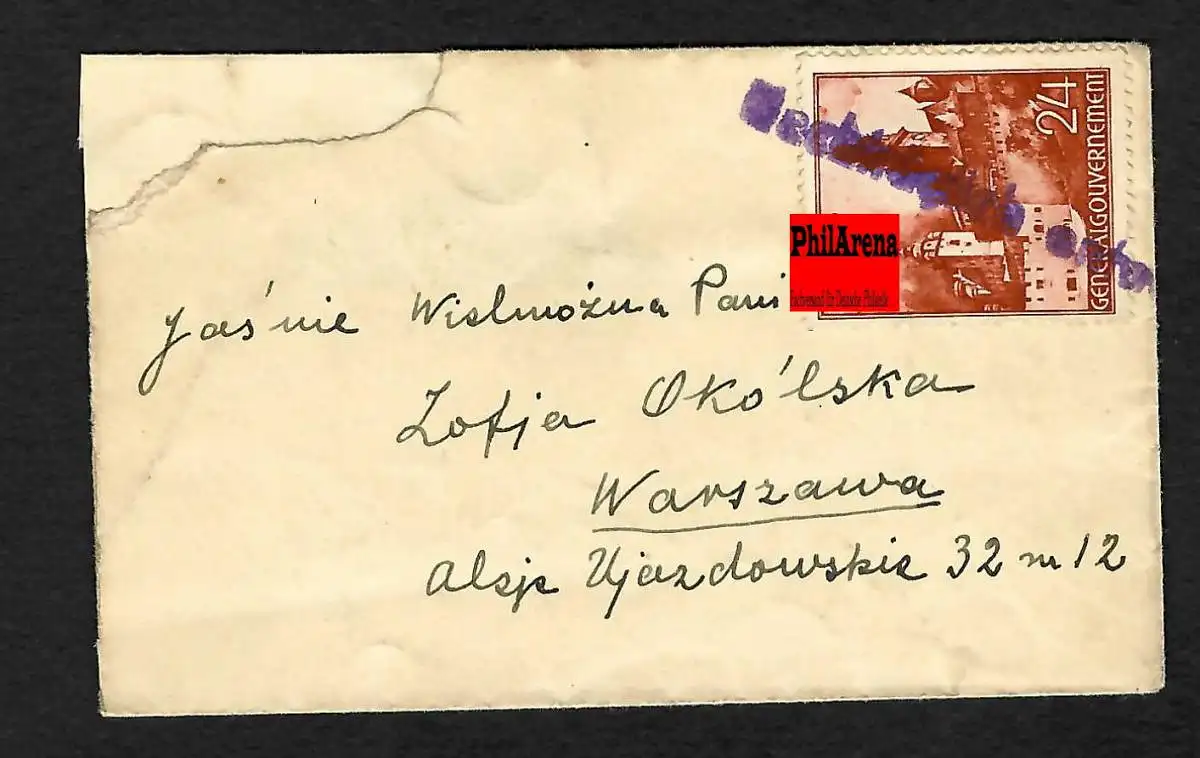 24
GENERALGOUVERNEMENT
PhilArena
Fachversand für Deutsche Philatelie
Jaśnie Wielmożna Pani
Zofja Okólska
Warszawa
Aleje Ujazdowskie 32 m 12